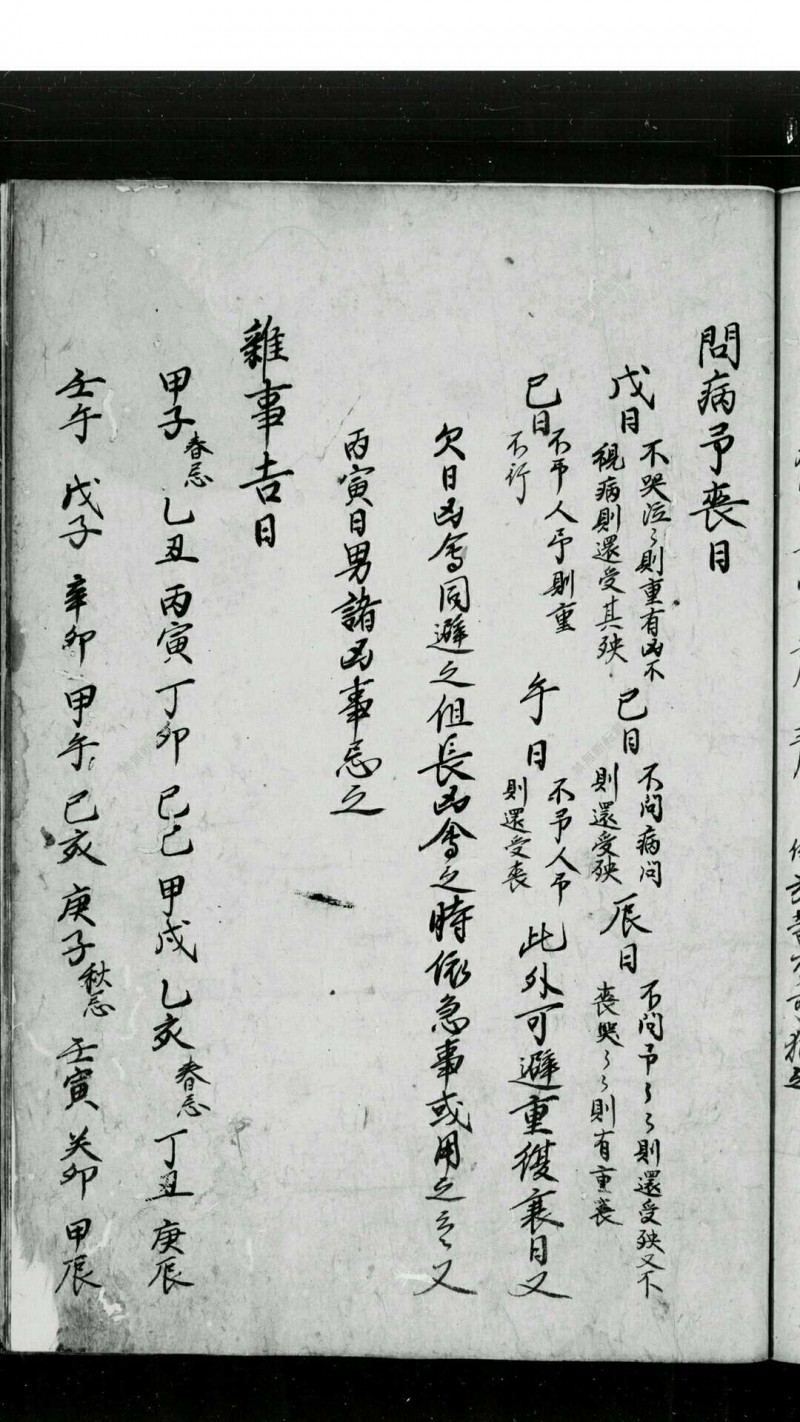 問病弔喪日
戊日 不哭泣〻則重有凶不
視病則還受其殃
巳日 不問病問
則還受殃
辰日 不問弔〻〻則還受殃又不
喪哭〻〻則有重喪
巳日 不弔人弔則重
不行
午日 不弔人弔
則還受喪
此外可避重復衰日又
欠日凶會同避之但長凶會之時依急事或用之云又
丙寅日男諸凶事忌之
雜事吉日
甲子春忌 乙丑 丙寅 丁卯 己巳 甲戌 乙亥春忌 丁丑 庚辰
壬午 戊子 辛卯 甲午 己亥 庚子秋忌 壬寅 癸卯 甲辰